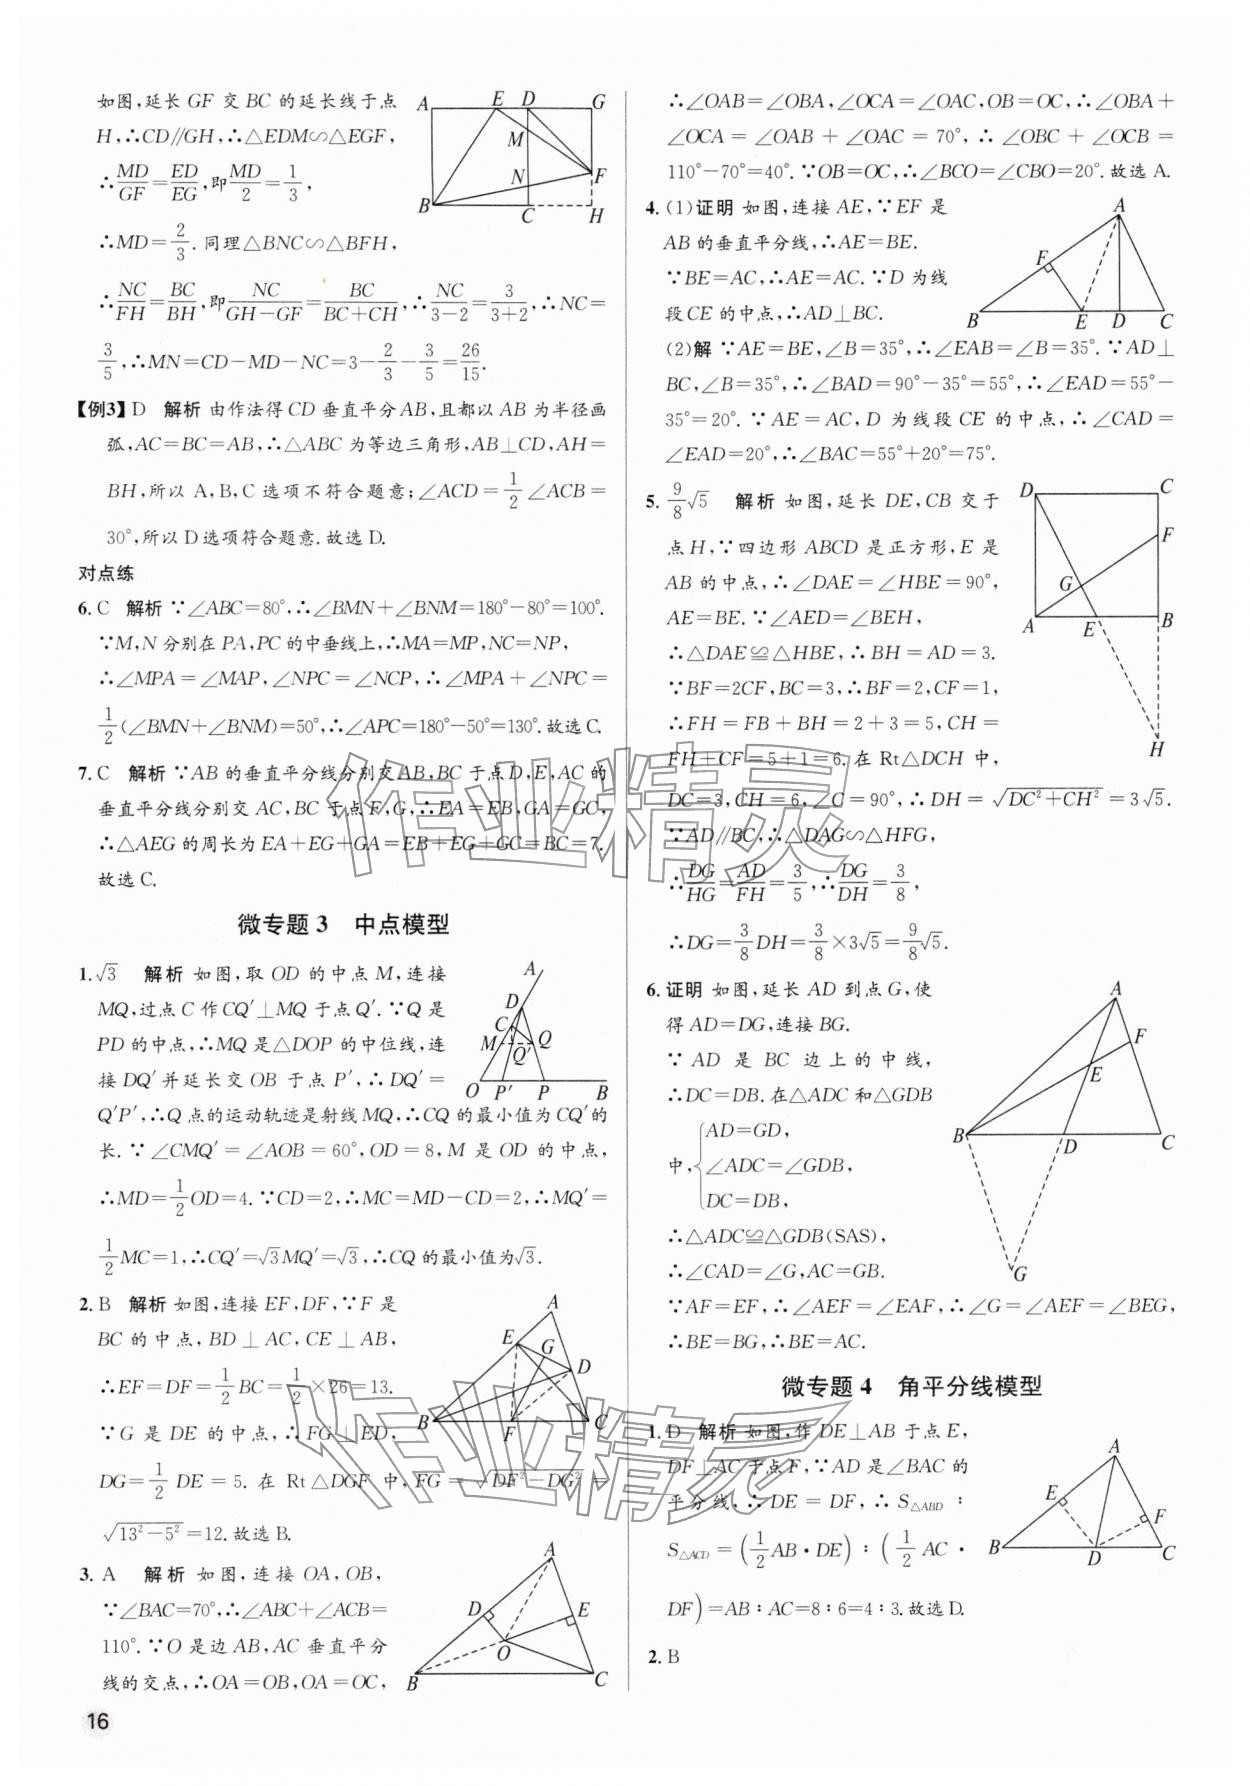 如图,延长 GF 交 BC 的延长线于点
H,∴CD∥GH,∴△EDM∽△EGF,
∴MD/GF=ED/EG,即MD/2=1/3,
∴MD=2/3.同理△BNC∽△BFH,
∴NC/FH=BC/BH,即NC/(GH-GF)=BC/(BC+CH),∴NC/(3-2)=3/(3+2),∴NC=
3/5,∴MN=CD-MD-NC=3-2/3-3/5=26/15.
【例3】D 解析 由作法得 CD 垂直平分 AB,且都以 AB 为半径画
弧,AC=BC=AB,∴△ABC 为等边三角形,AB⊥CD,AH=
BH,所以 A,B,C 选项不符合题意;∠ACD=1/2∠ACB=
30°,所以 D 选项符合题意.故选 D.
对点练
6. C 解析 ∵∠ABC=80°,∴∠BMN+∠BNM=180°-80°=100°.
∵M,N 分别在 PA,PC 的中垂线上,∴MA=MP,NC=NP,
∴∠MPA=∠MAP,∠NPC=∠NCP,∴∠MPA+∠NPC=
1/2(∠BMN+∠BNM)=50°,∴∠APC=180°-50°=130°.故选 C.
7. C 解析 ∵AB 的垂直平分线分别交 AB,BC 于点 D,E,AC 的
垂直平分线分别交 AC,BC 于点 F,G,∴EA=EB,GA=GC,
∴△AEG 的周长为 EA+EG+GA=EB+EG+GC=BC=7.
故选 C.
微专题 3 中点模型
1. √3 解析 如图,取 OD 的中点 M,连接
MQ,过点 C 作 CQ′⊥MQ 于点 Q′.∵Q 是
PD 的中点,∴MQ 是△DOP 的中位线,连
接 DQ′并延长交 OB 于点 P′,∴DQ′=
Q′P′,∴Q 点的运动轨迹是射线 MQ,∴CQ 的最小值为 CQ′的
长.∵∠CMQ′=∠AOB=60°,OD=8,M 是 OD 的中点,
∴MD=1/2OD=4.∵CD=2,∴MC=MD-CD=2,∴MQ′=
1/2MC=1,∴CQ′=√3MQ′=√3,∴CQ 的最小值为√3.
2. B 解析 如图,连接 EF,DF,∵F 是
BC 的中点,BD⊥AC,CE⊥AB,
∴EF=DF=1/2BC=1/2×26=13.
∵G 是 DE 的中点,∴FG⊥ED,
DG=1/2DE=5.在 Rt△DGF 中,FG=√(DF²-DG²)=
√(13²-5²)=12.故选 B.
3. A 解析 如图,连接 OA,OB,
∵∠BAC=70°,∴∠ABC+∠ACB=
110°.∵O 是边 AB,AC 垂直平分
线的交点,∴OA=OB,OA=OC,
∴∠OAB=∠OBA,∠OCA=∠OAC,OB=OC,∴∠OBA+
∠OCA=∠OAB+∠OAC=70°,∴∠OBC+∠OCB=
110°-70°=40°.∵OB=OC,∴∠BCO=∠CBO=20°.故选 A.
4. (1)证明 如图,连接 AE,∵EF 是
AB 的垂直平分线,∴AE=BE.
∵BE=AC,∴AE=AC.∵D 为线
段 CE 的中点,∴AD⊥BC.
(2)解 ∵AE=BE,∠B=35°,∴∠EAB=∠B=35°.∵AD⊥
BC,∠B=35°,∴∠BAD=90°-35°=55°,∴∠EAD=55°-
35°=20°.∵AE=AC,D 为线段 CE 的中点,∴∠CAD=
∠EAD=20°,∴∠BAC=55°+20°=75°.
5. 9/8√5 解析 如图,延长 DE,CB 交于
点 H,∵四边形 ABCD 是正方形,E 是
AB 的中点,∴∠DAE=∠HBE=90°,
AE=BE.∵∠AED=∠BEH,
∴△DAE≌△HBE,∴BH=AD=3.
∵BF=2CF,BC=3,∴BF=2,CF=1,
∴FH=FB+BH=2+3=5,CH=
FH+CF=5+1=6.在 Rt△DCH 中,
DC=3,CH=6,∠C=90°,∴DH=√(DC²+CH²)=3√5.
∵AD∥BC,∴△DAG∽△HFG,
∴DG/HG=AD/FH=3/5,∴DG/DH=3/8,
∴DG=3/8DH=3/8×3√5=9/8√5.
6. 证明 如图,延长 AD 到点 G,使
得 AD=DG,连接 BG.
∵AD 是 BC 边上的中线,
∴DC=DB.在△ADC 和△GDB
中,{AD=GD,
∠ADC=∠GDB,
DC=DB,
∴△ADC≌△GDB(SAS),
∴∠CAD=∠G,AC=GB.
∵AF=EF,∴∠AEF=∠EAF,∴∠G=∠AEF=∠BEG,
∴BE=BG,∴BE=AC.
微专题 4 角平分线模型
1. D 解析 如图,作 DE⊥AB 于点 E,
DF⊥AC 于点 F,∵AD 是∠BAC 的
平分线,∴DE=DF,∴S△ABD:
S△ACD=(1/2AB·DE):(1/2AC·
DF)=AB:AC=8:6=4:3.故选 D.
2. B
16
作业精灵
作业精灵